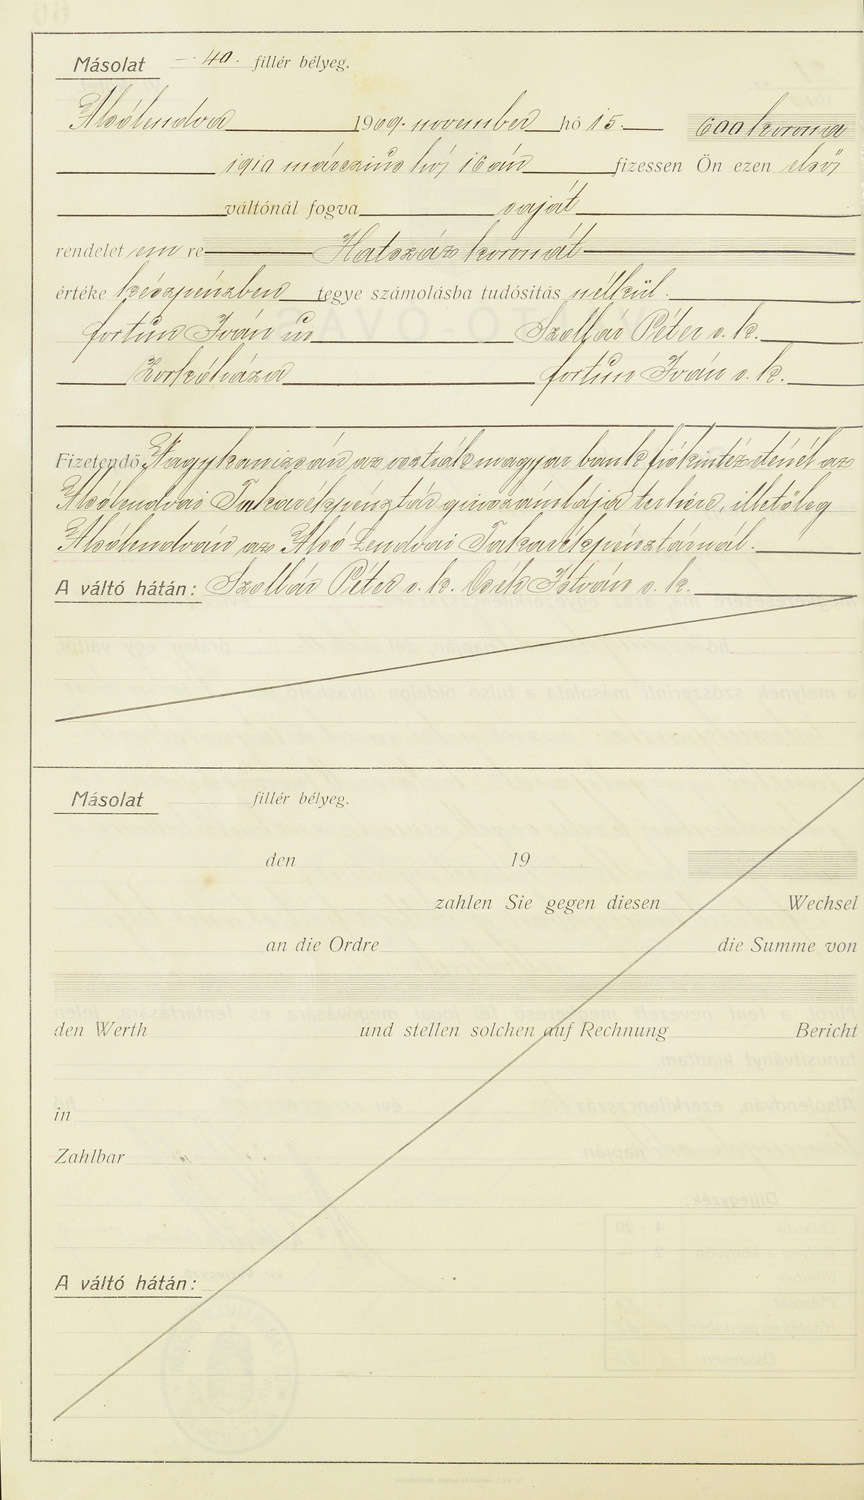 Másolat — 40. fillér bélyeg.
Alsólendva 1909. november hó 15. 600 korona
1910 márczius hó 16án fizessen Ön ezen első
váltónál fogva saját
rendelet em re Hatszáz koronát
értéke készpénzben tegye számolásba tudósitás nélkül.
fortun Iván úr Szollár Péter s. k.
Zorkóháza fortun Iván s. k.
Fizetendő Nagykanizsán az osztrák magyar bank fiókintézeténél az
Alsólendvai Takarékpénztár giroszámlája terhére, illetőleg
Alsólendván az Alsó Lendvai Takarékpénztárnál.
A váltó hátán: Szollár Péter s. k. Csék István s. k.
Másolat fillér bélyeg.
den 19
zahlen Sie gegen diesen Wechsel
an die Ordre die Summe von
den Werth und stellen solchen auf Rechnung Bericht
in
Zahlbar
A váltó hátán: